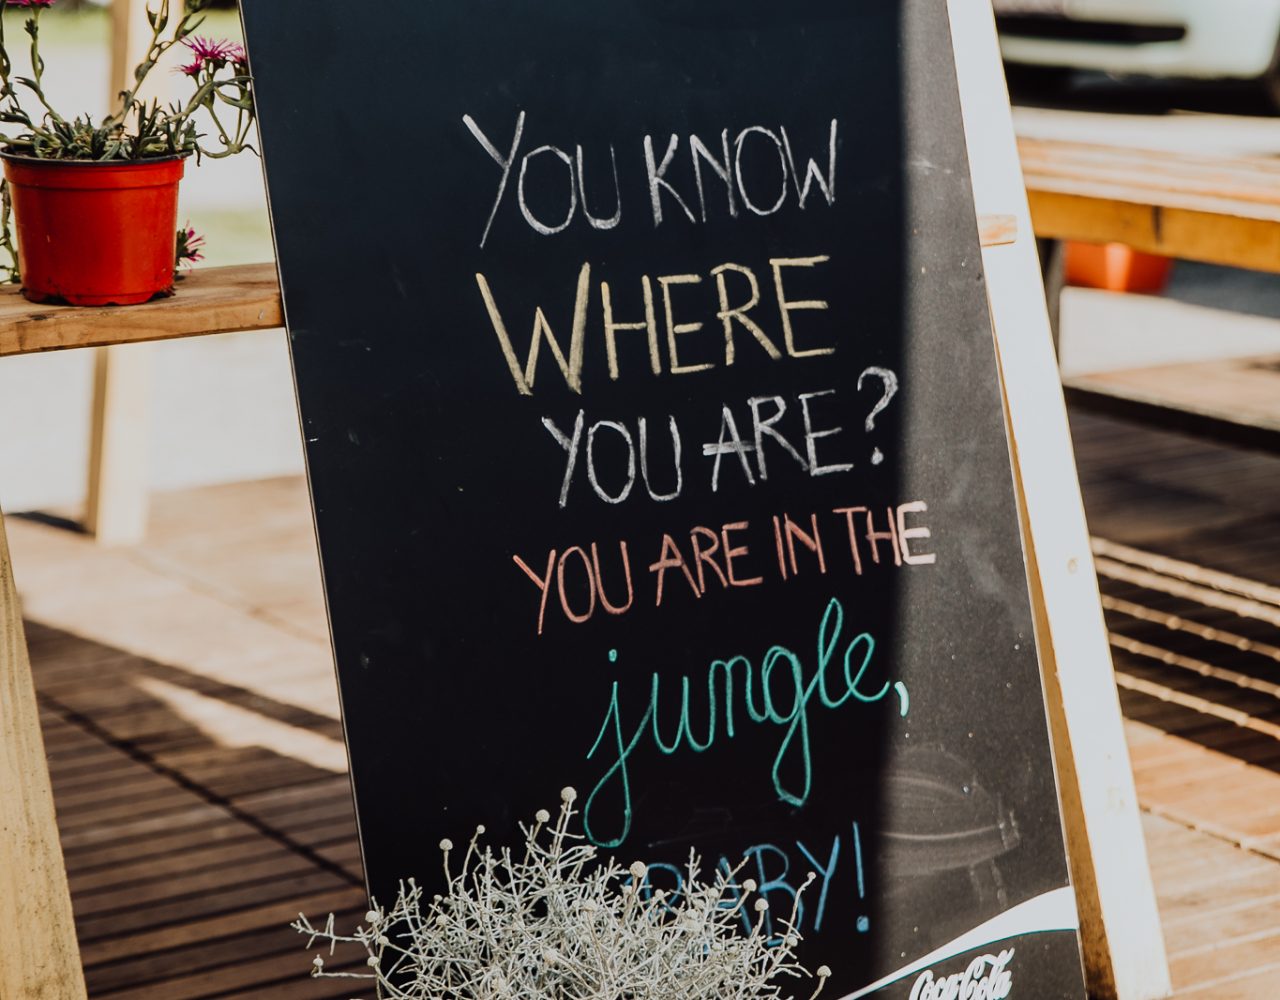 YOU KNOW
WHERE
YOU ARE?
YOU ARE IN THE
jungle,
BABY!
Coca-Cola